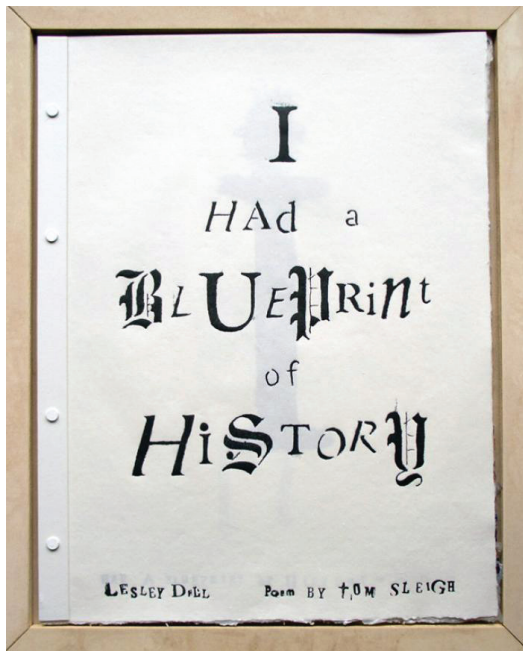 I
HAd a
BLUEPRint
of
HiSTORY
LESLEY DiLL Poem BY TOM SLEIGH